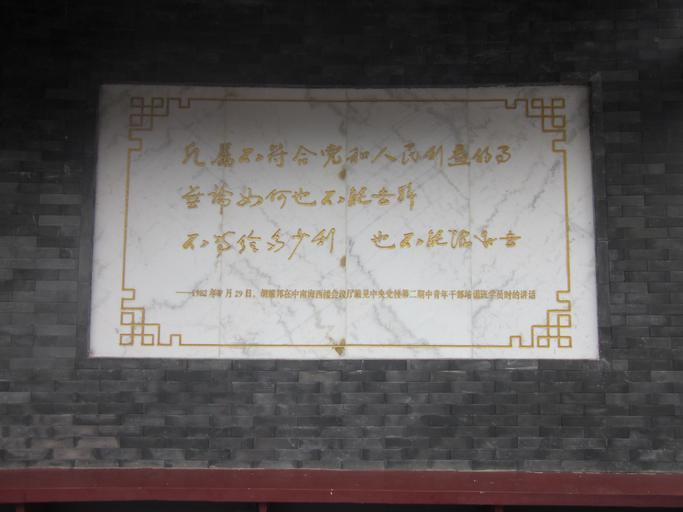 凡属不符合党和人民利益的事
无论如何也不能去办
不管给多少利 也不能干
——1982年 月29日，胡耀邦在中南海西楼会议厅接见中央党校第二期中青年干部培训班学员时的讲话